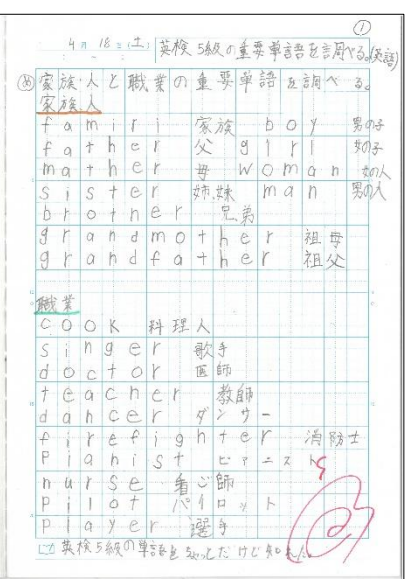 ①
4月18日(土) 英検5級の重要単語を調べる。(英語)
め 家族・人と職業の重要単語を調べる。
家族・人
famiri 家族 boy 男の子
father 父 girl 女の子
mather 母 woman 女の人
sister 姉、妹 man 男の人
brother 兄弟
grandmother 祖母
grandfather 祖父
職業
cook 料理人
singer 歌手
doctor 医師
teacher 教師
dancer ダンサー
firefighter 消防士
pianist ピアニスト
nurse 看ご師
pilot パイロット
player 選手
英検5級の単語をちょっとだけど知れた。